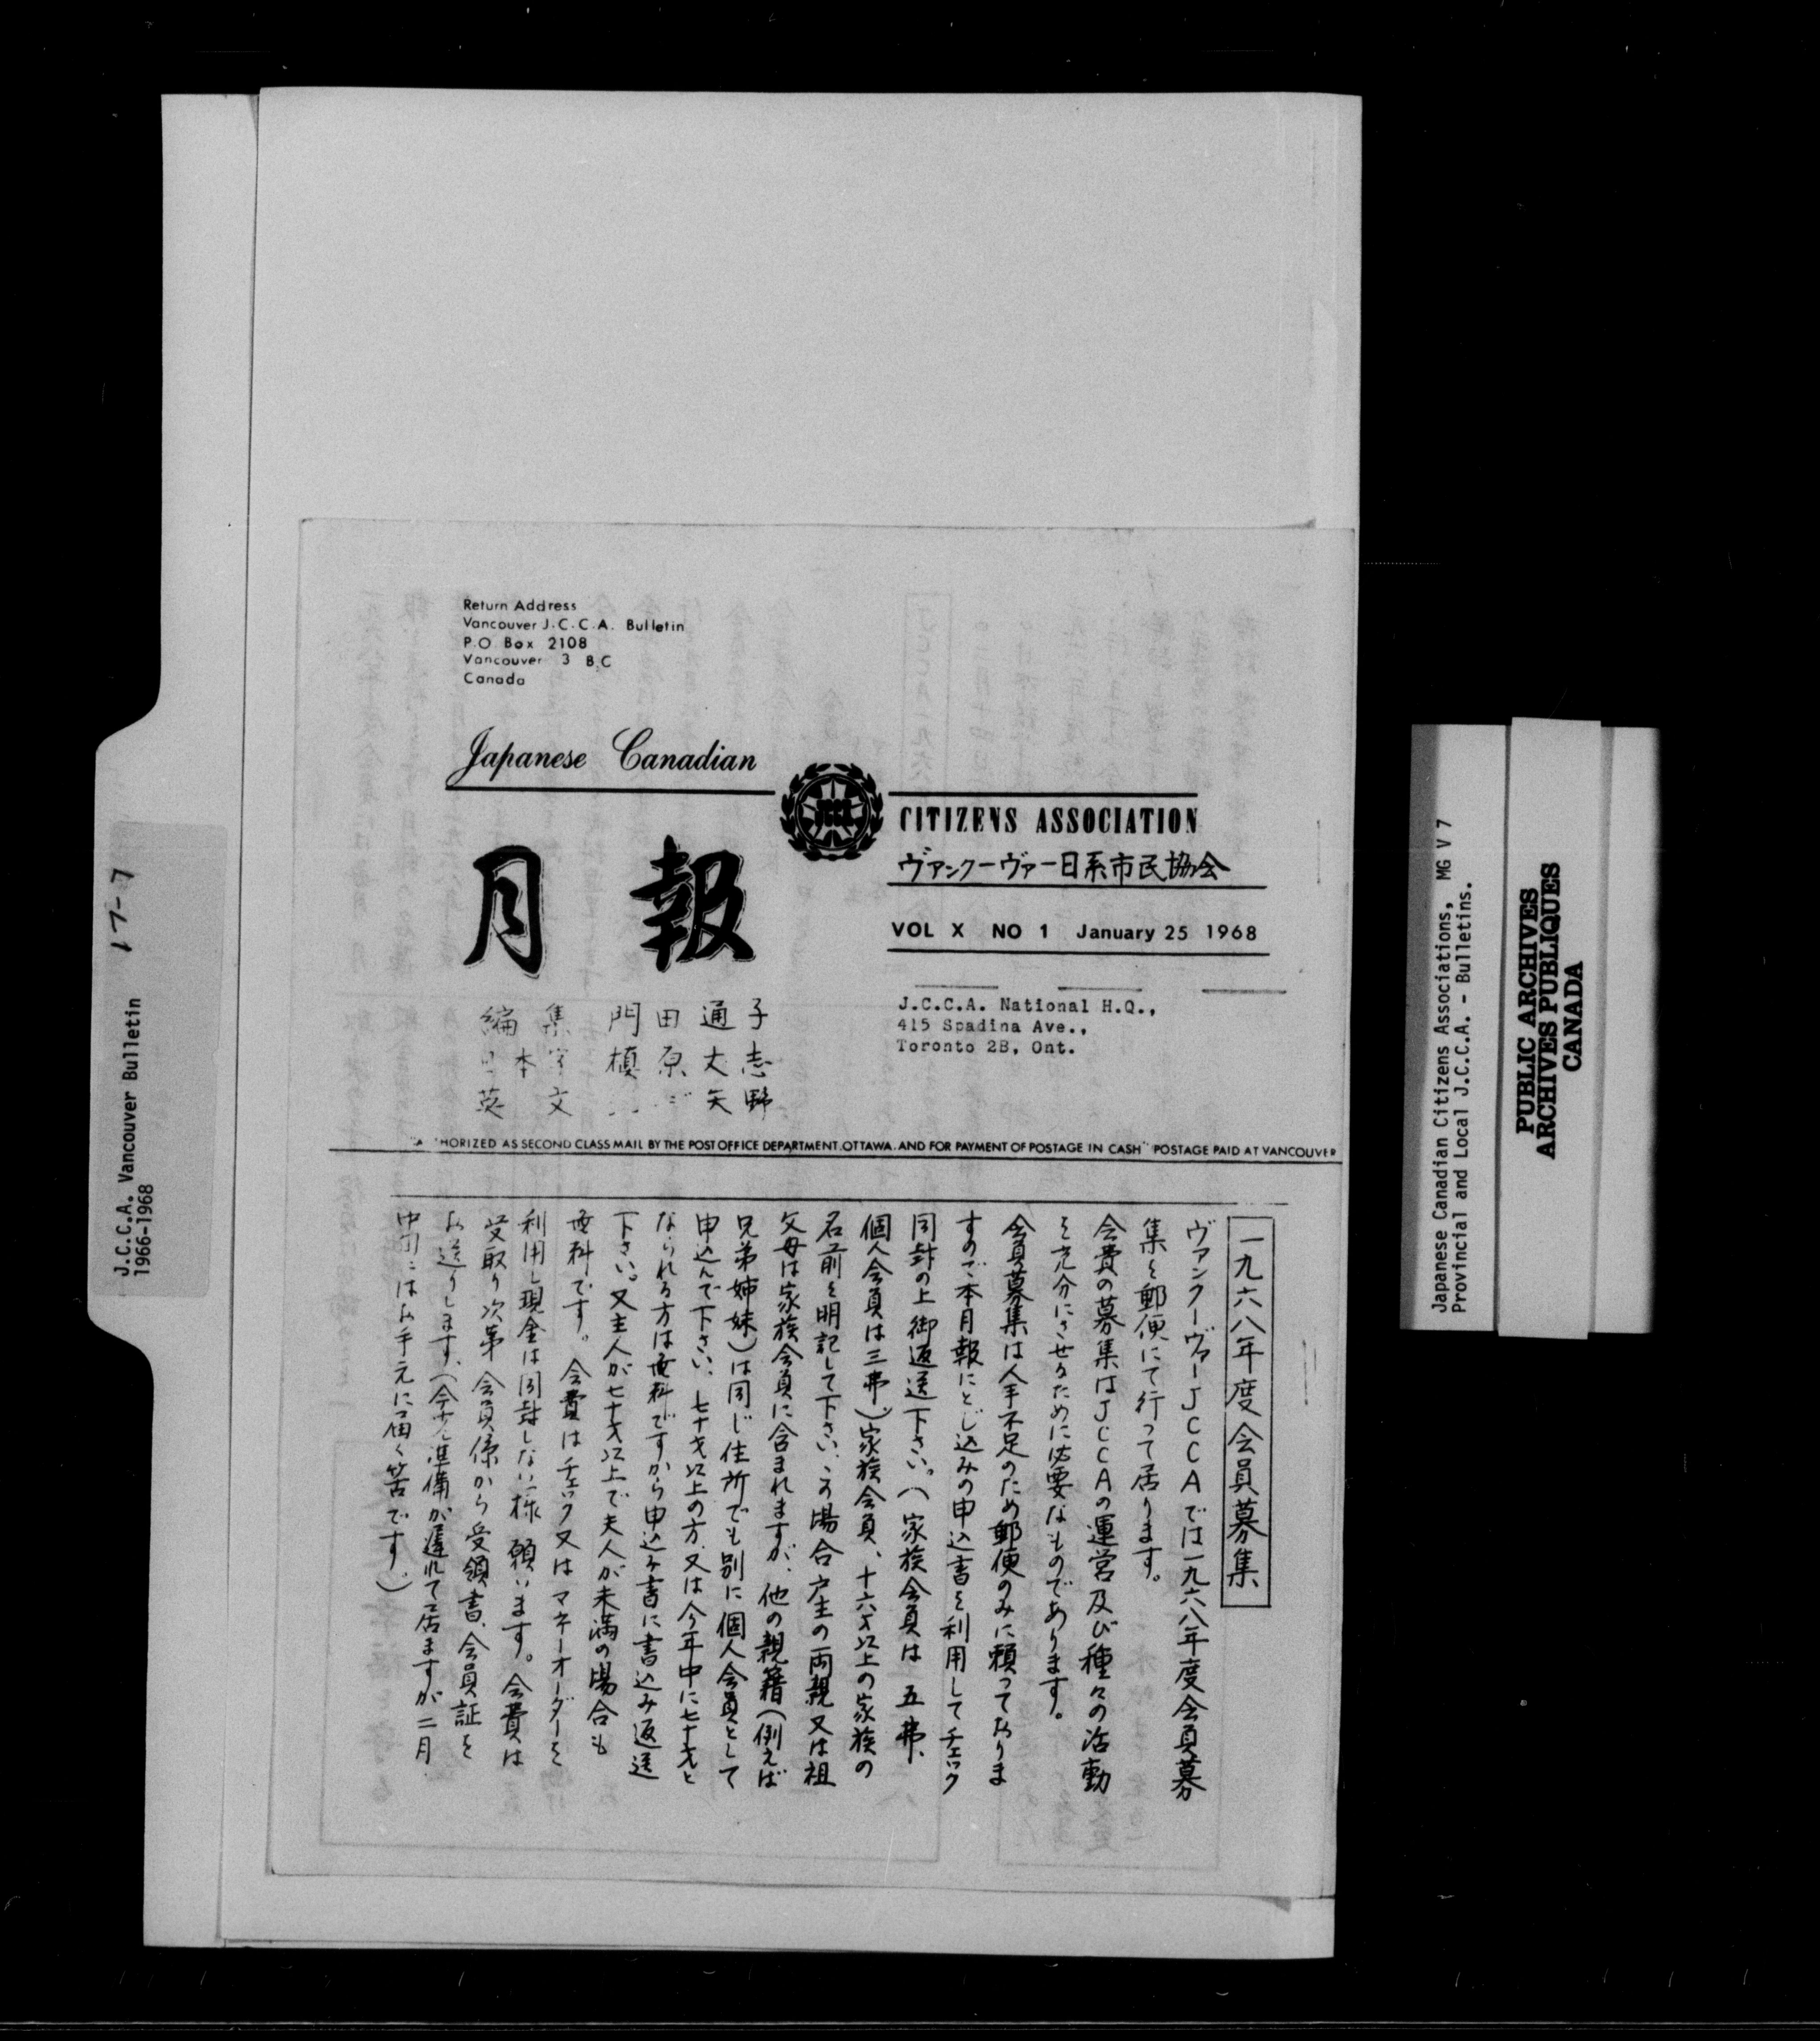 Return Address
Vancouver J.C.C.A. Bulletin
P.O. Box 2108
Vancouver 3 B.C
Canada
Japanese Canadian
CITIZENS ASSOCIATION
ヴァンクーヴァー日系市民協会
月報
VOL X NO 1 January 25 1968
J.C.C.A. National H.Q.,
415 Spadina Ave.,
Toronto 2B, Ont.
編集 門田通子
本 槙原丈志
英文 矢野
HORIZED AS SECOND CLASS MAIL BY THE POST OFFICE DEPARTMENT. OTTAWA. AND FOR PAYMENT OF POSTAGE IN CASH" POSTAGE PAID AT VANCOUVER
一九六八年度会員募集
ヴァンクーヴァーJCCAでは一九六八年度会員募
集を郵便にて行って居ります。
会費の募集はJCCAの運営及び種々の活動
を充分にさせるために必要なものであります。
会員募集は人手不足のため郵便のみに頼っておりま
すので本月報にとじ込みの申込書を利用してチェック
同封の上御返送下さい。(家族会員は五弗、
個人会員は三弗)家族会員、十六才以上の家族の
名前を明記して下さい、この場合戸主の両親又は祖
父母は家族会員に含まれますが、他の親籍(例えば
兄弟姉妹)は同じ住所でも別に個人会員として
申込んで下さい、七十才以上の方、又は今年中に七十才と
なられる方は無料ですから申込み書に書込み返送
下さい。又主人が七十才以上で夫人が未満の場合も
無料です。会費はチェック又はマネーオーダーを
利用し現金は同封しない様願います。会費は
受取り次第会員係から受領書、会員証を
お送りします、(今少し準備が遅れて居ますが二月
中旬にはお手元に届く筈です。)
J.C.C.A. Vancouver Bulletin 17-7
1966-1968
Japanese Canadian Citizens Associations, MG V 7
Provincial and Local J.C.C.A. - Bulletins.
PUBLIC ARCHIVES
ARCHIVES PUBLIQUES
CANADA